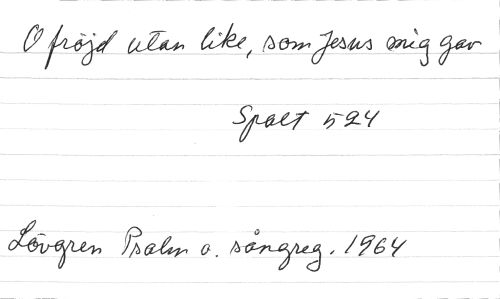 O fröjd utan like, som Jesus mig gav
Spalt 524
Lövgren Psalm o. sångreg. 1964